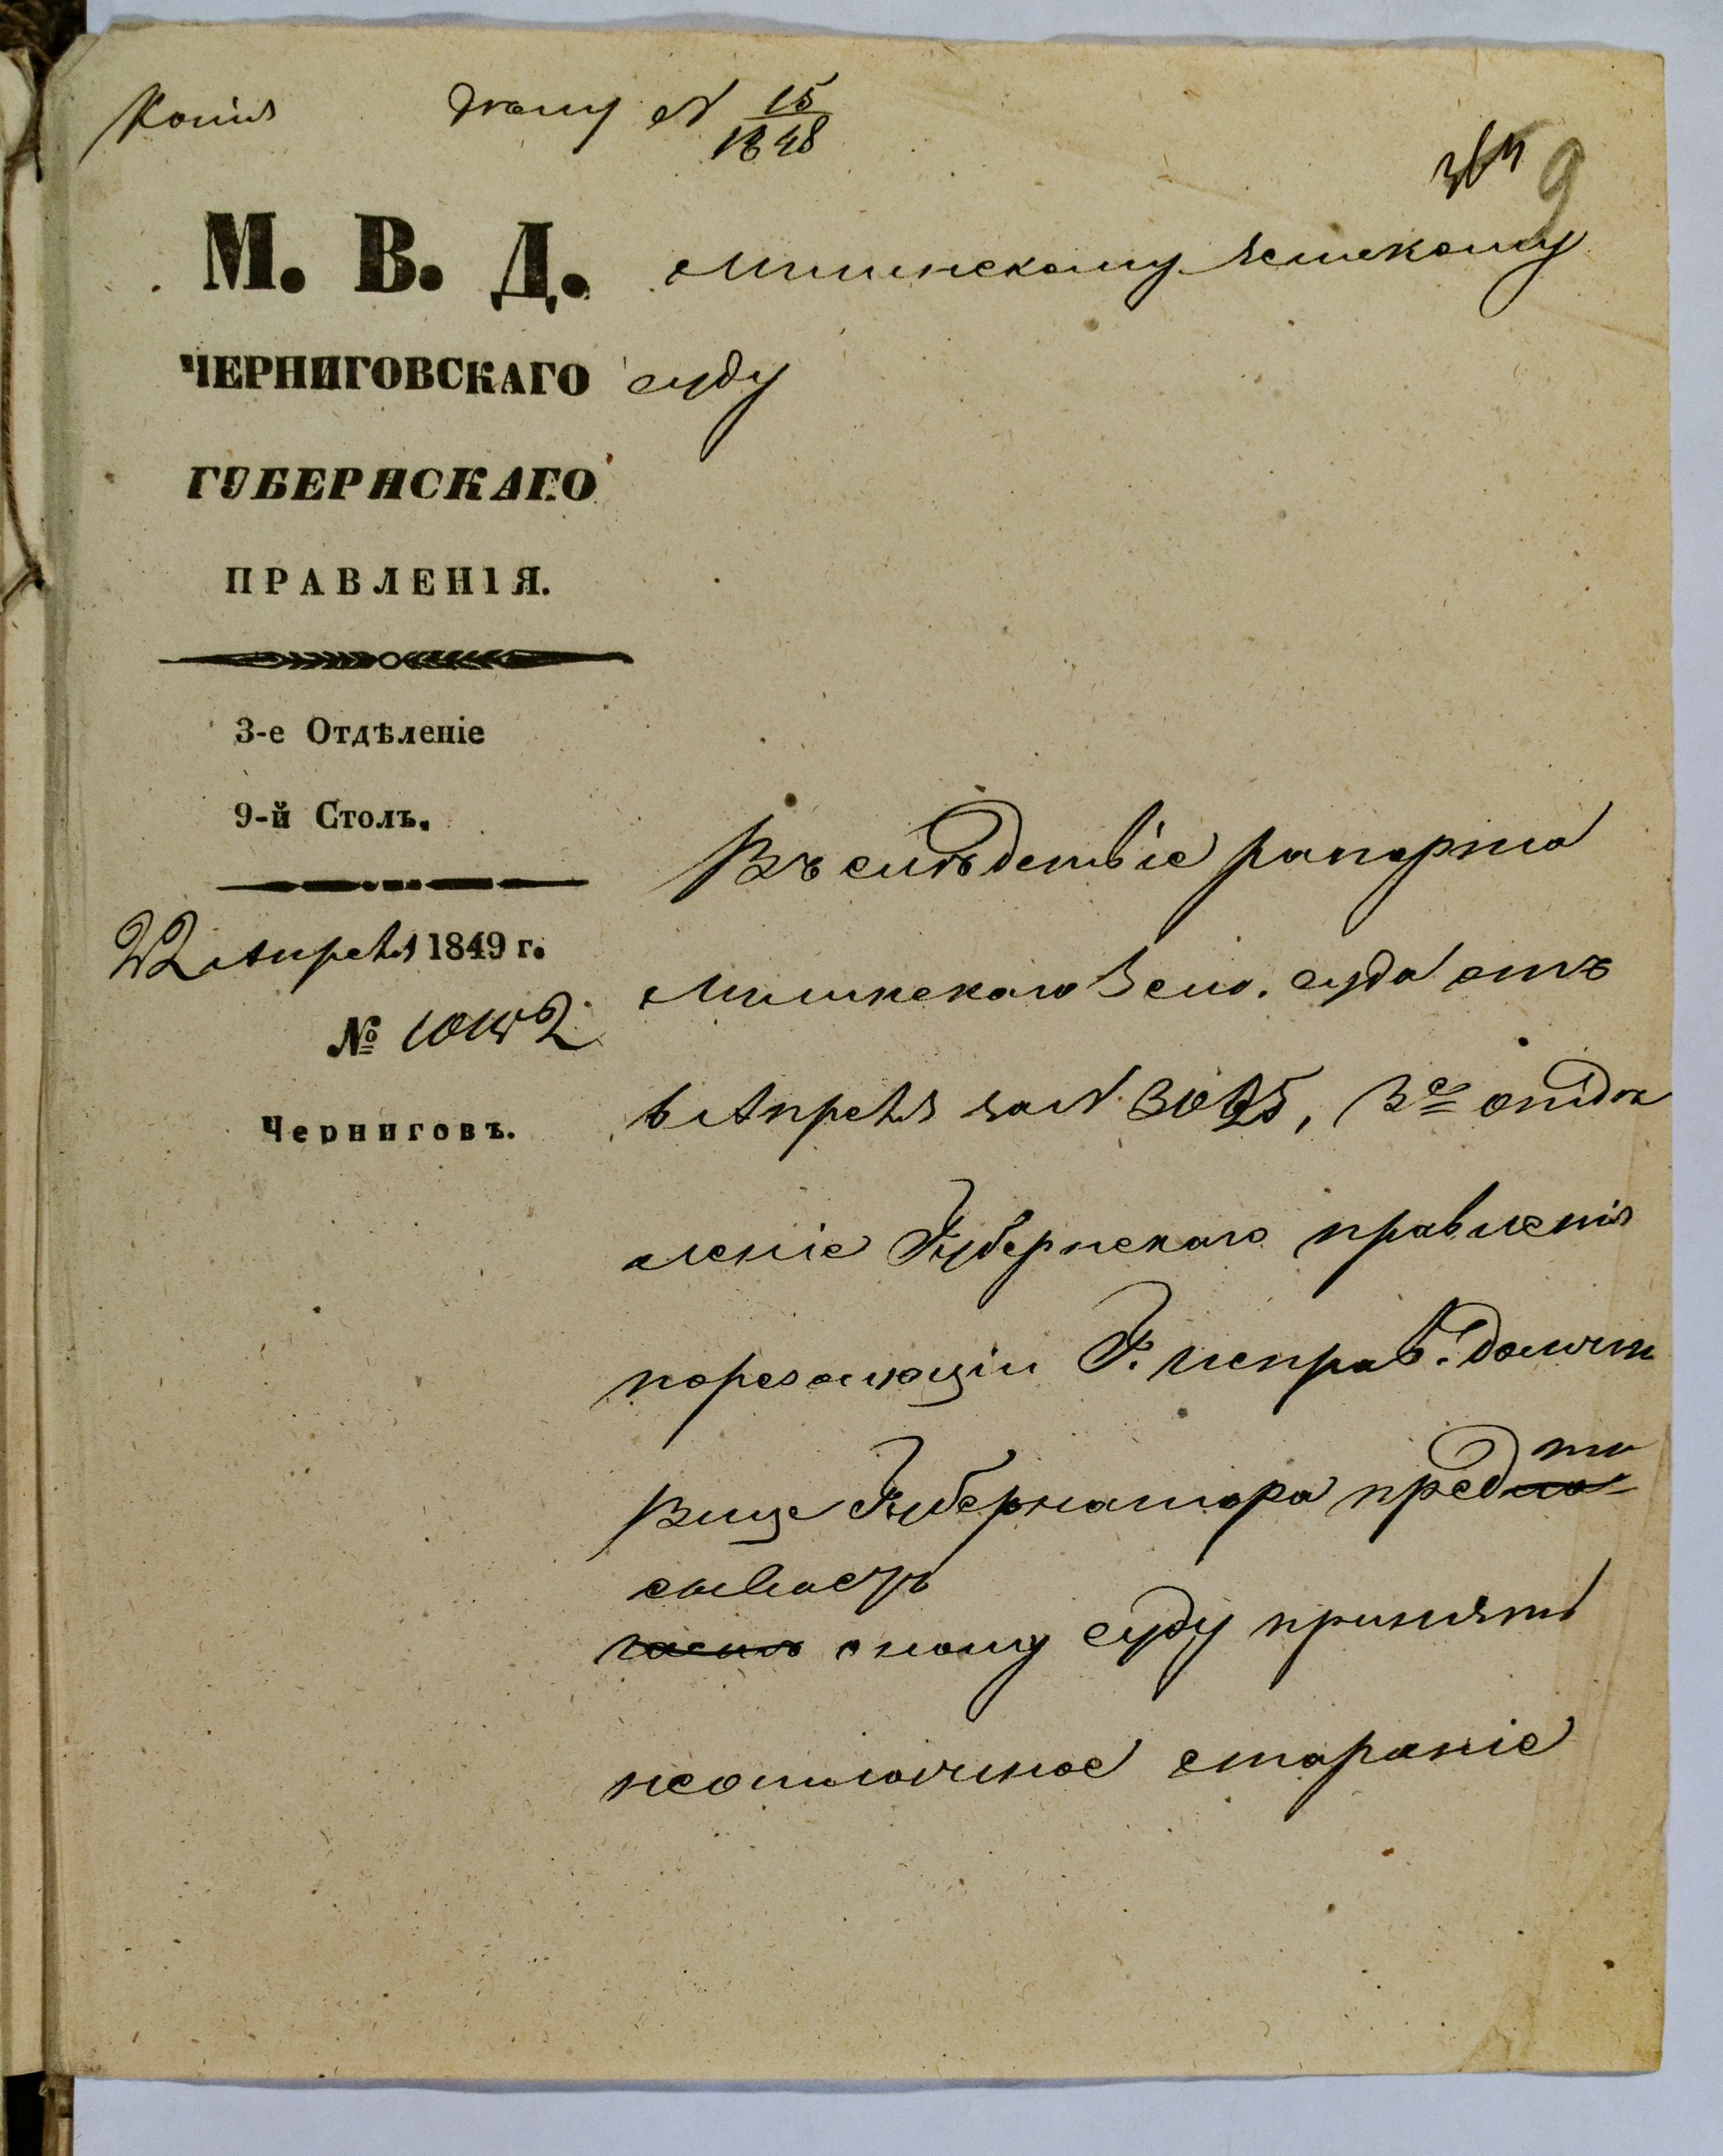 Копія
№ 15/1848
М. В. Д.
ЧЕРНИГОВСКАГО
ГУБЕРНСКАГО
ПРАВЛЕНІЯ.
3-е Отдѣленіе
9-й Столъ.
22 Апрѣля 1849 г.
№
Черниговъ.
9
Мглинскому Земскому
суду
Въ слѣдствіе рапорта
Мглинскаго Зем. суда отъ
6 Апрѣля за № 3025, 3е отдѣ
леніе Губернскаго правленія
по резолюціи Г. исправ. должн.
Вице Губернатора предпи
сываетъ
оному суду принять
неотложное стараніе